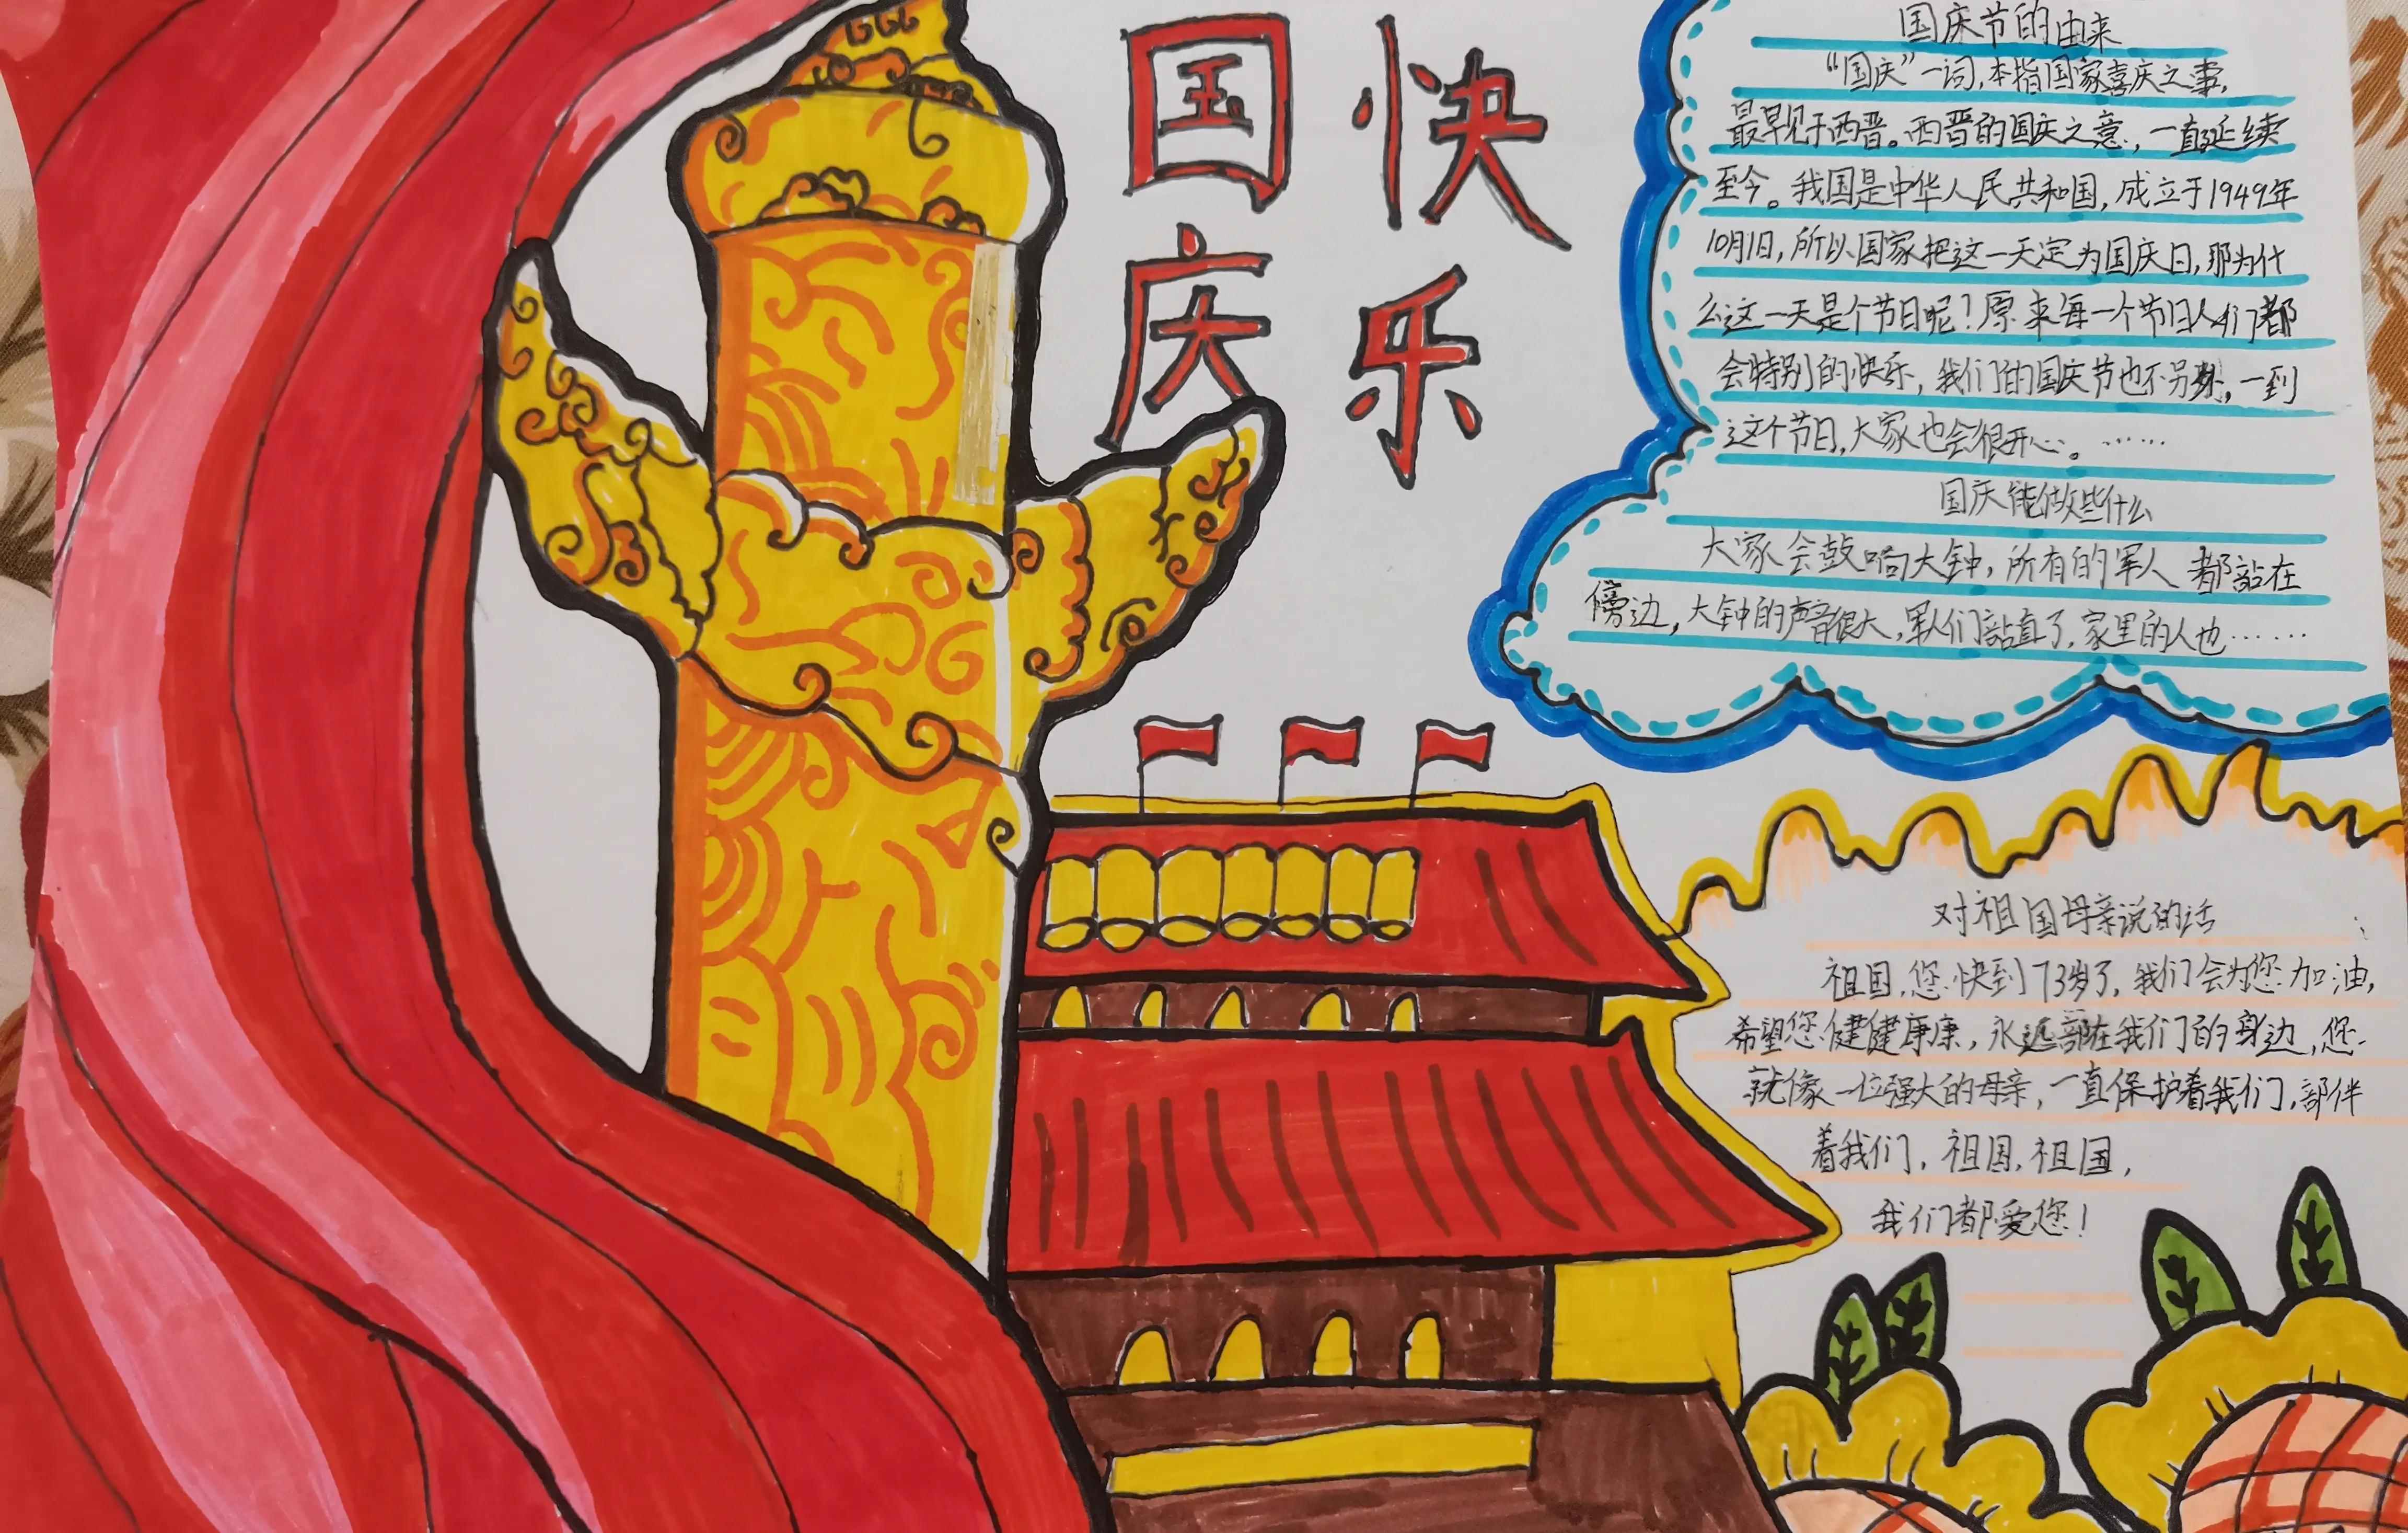 国庆
快乐
国庆节的由来
“国庆”一词，本指国家喜庆之事，
最早见于西晋。西晋的国庆之意，一直延续
至今。我国是中华人民共和国，成立于1949年
10月1日，所以国家把这一天定为国庆日，那为什
么这一天是个节日呢！原来每一个节日人们都
会特别的快乐，我们的国庆节也不另外，一到
这个节日，大家也会很开心。……
国庆能做些什么
大家会鼓响大钟，所有的军人都站在
傍边，大钟的声音很大，军人们站直了，家里的人也……
对祖国母亲说的话
祖国，您快到73岁了，我们会为您加油，
希望您健健康康，永远部在我们的身边，您
就像一位强大的母亲，一直保护着我们，部伴
着我们，祖国，祖国，
我们都爱您！